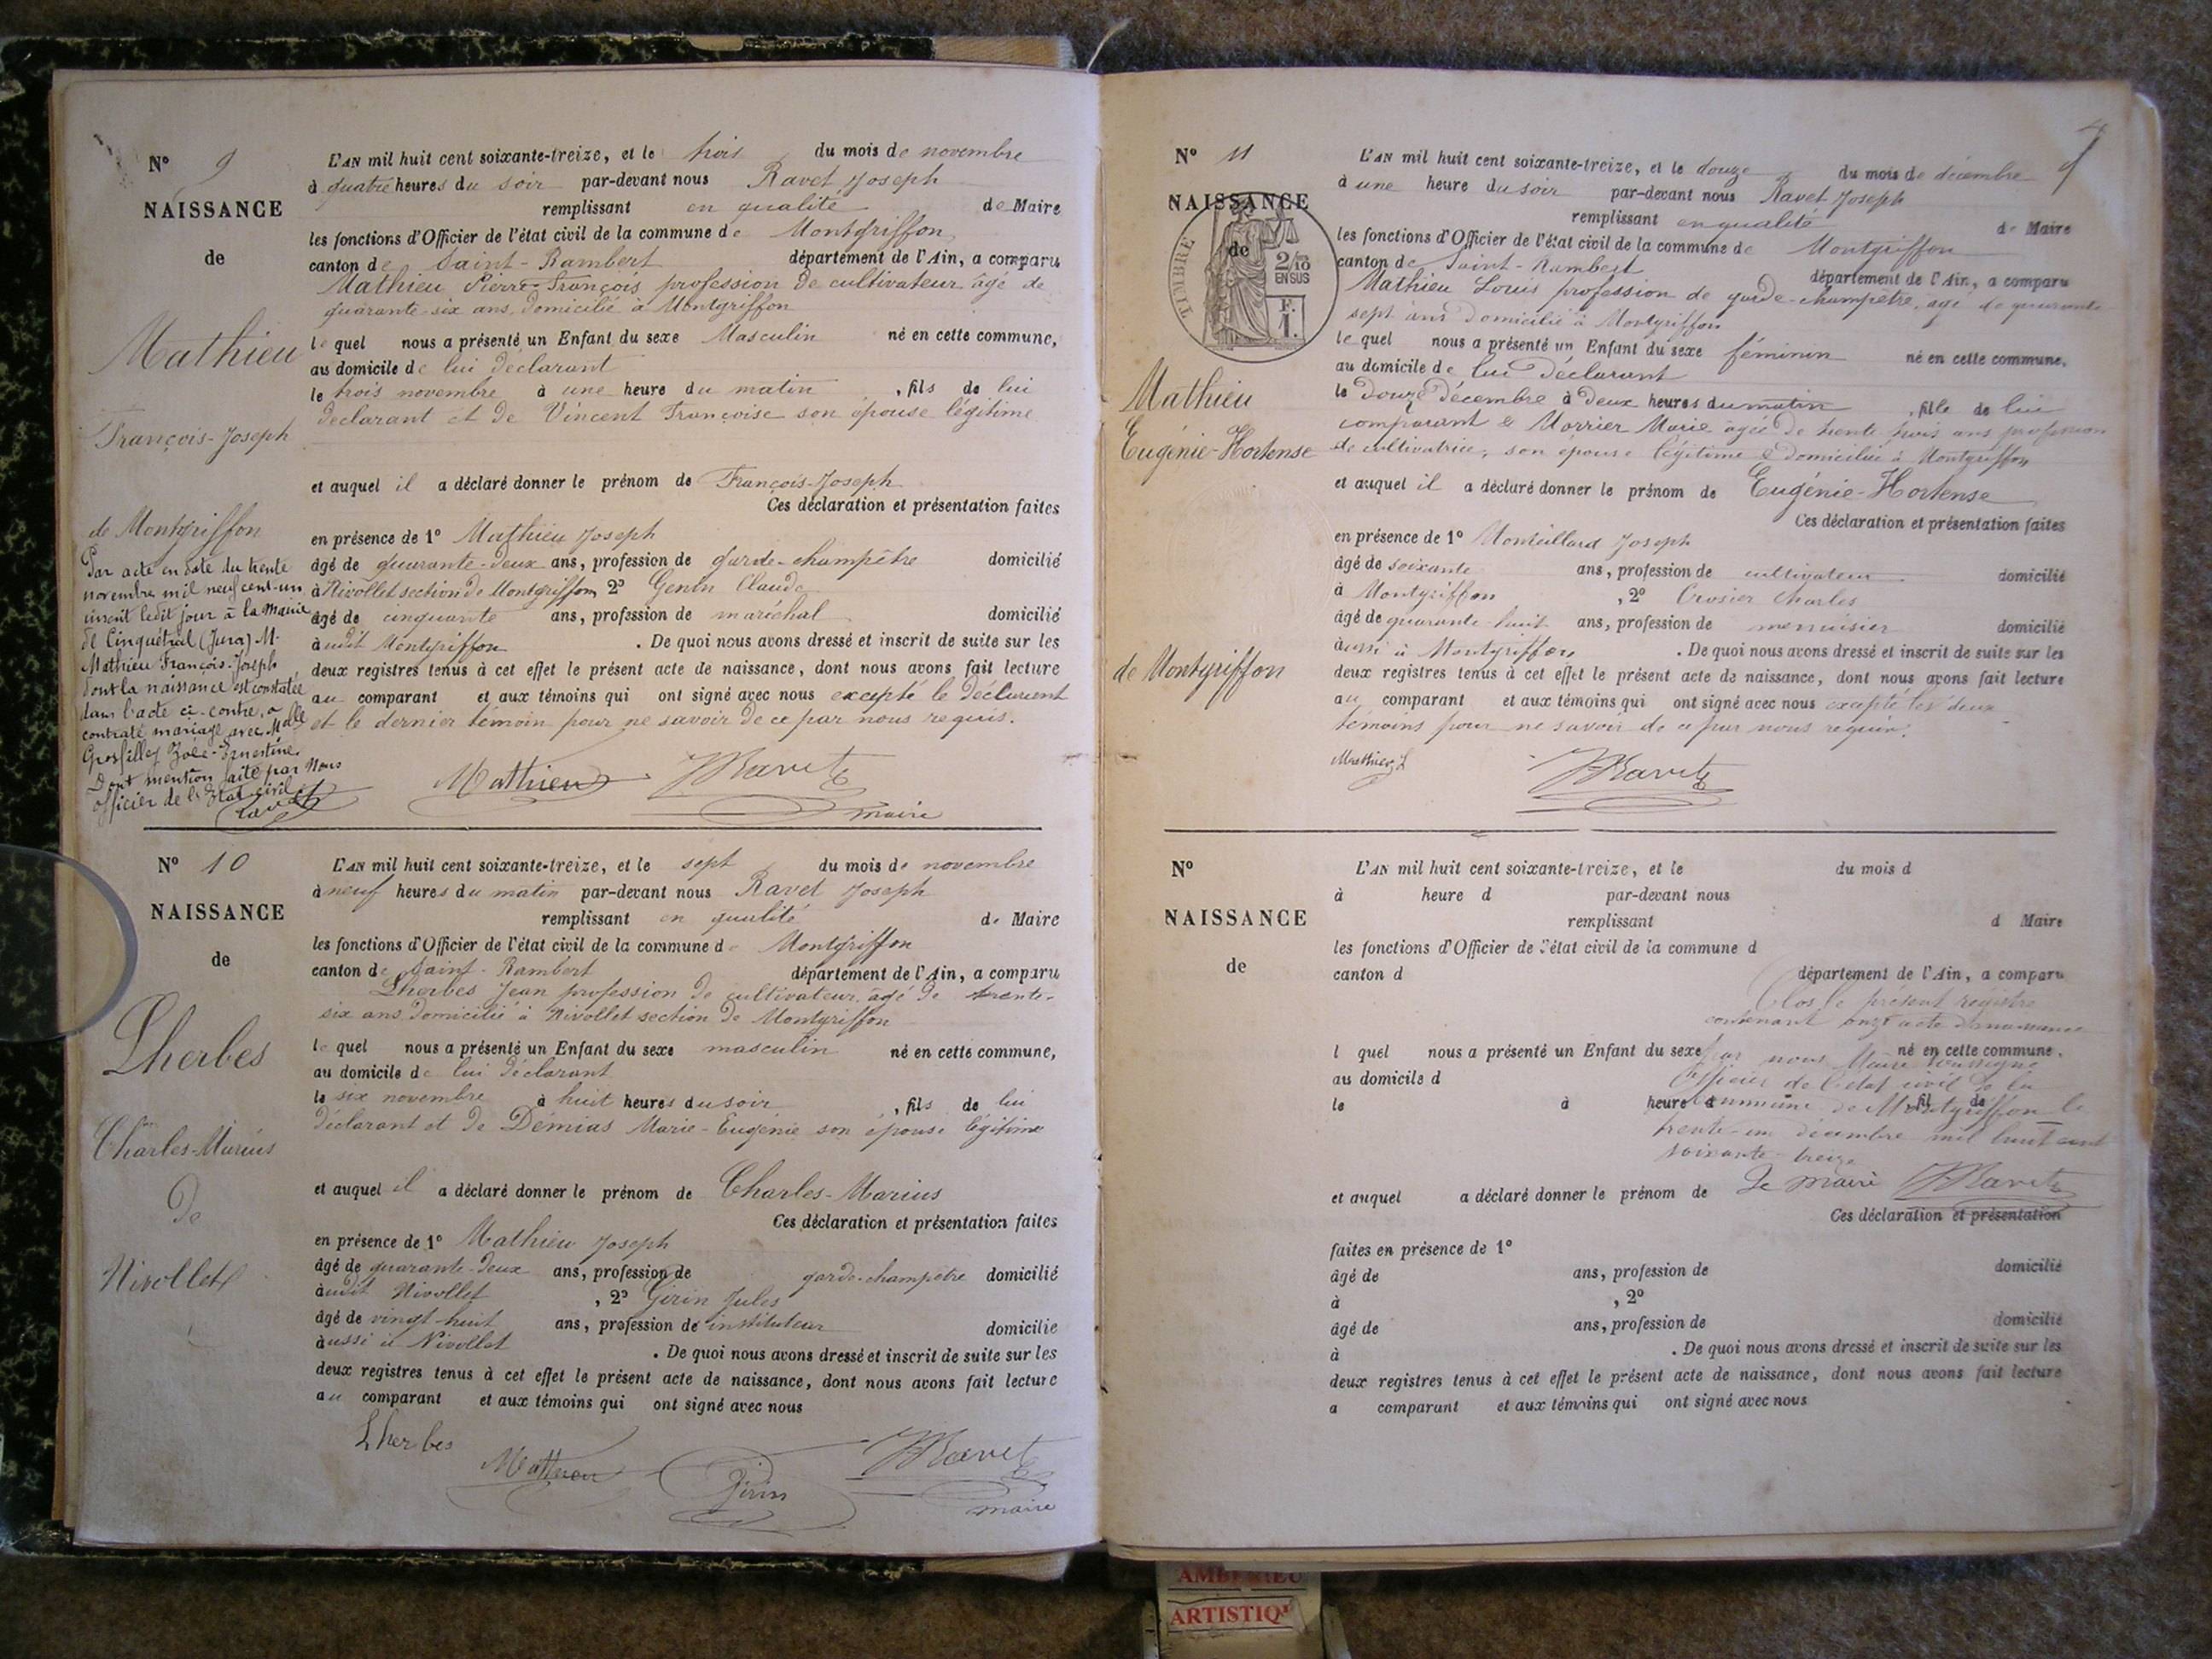 N° 9
NAISSANCE
de
Mathieu
François-Joseph
de Montgriffon
Par acte en date du trente
novembre mil neuf cent-un
inscrit ledit jour à la Mairie
de Cinquétral (Jura) M.
Mathieu François-Joseph
dont la naissance est constatée
dans l'acte ci-contre, a
contracté mariage avec Melle
Grosfilley Zoée-Ernestine.
Dont mention faite par Nous
officier de l'Etat civil
Ravet
L'AN mil huit cent soixante-treize, et le trois du mois de novembre
à quatre heures du soir par-devant nous Ravet Joseph
remplissant en qualité de Maire
les fonctions d'Officier de l'état civil de la commune de Montgriffon
canton de Saint-Rambert département de l'Ain, a comparu
Mathieu Pierre-François profession de cultivateur âgé de
quarante-six ans, domicilié à Montgriffon
lequel nous a présenté un Enfant du sexe Masculin né en cette commune,
au domicile de lui déclarant
le trois novembre à une heure du matin, fils de lui
déclarant et de Vincent Françoise son épouse légitime
et auquel il a déclaré donner le prénom de François-Joseph
Ces déclaration et présentation faites
en présence de 1° Mathieu Joseph
âgé de quarante-deux ans, profession de garde-champêtre domicilié
à Nivollet section de Montgriffon, 2° Genin Claude
âgé de cinquante ans, profession de maréchal domicilié
audit Montgriffon. De quoi nous avons dressé et inscrit de suite sur les
deux registres tenus à cet effet le présent acte de naissance, dont nous avons fait lecture
au comparant et aux témoins qui ont signé avec nous excepté le déclarant
et le dernier témoin pour ne savoir de ce par nous requis.
Mathieu JRavet
maire
N° 10
NAISSANCE
de
Lherbes
Charles-Marius
De
Nivollet
L'AN mil huit cent soixante-treize, et le sept du mois de novembre
à neuf heures du matin par-devant nous Ravet Joseph
remplissant en qualité de Maire
les fonctions d'Officier de l'état civil de la commune de Montgriffon
canton de Saint-Rambert département de l'Ain, a comparu
Lherbes Jean profession de cultivateur, âgé de trente-
six ans domicilié à Nivollet section de Montgriffon
lequel nous a présenté un Enfant du sexe masculin né en cette commune,
au domicile de lui déclarant
le six novembre à huit heures du soir, fils de lui
déclarant et de Démias Marie-Eugénie son épouse légitime
et auquel il a déclaré donner le prénom de Charles-Marius
Ces déclaration et présentation faites
en présence de 1° Mathieu Joseph
âgé de quarante-deux ans, profession de garde-champêtre domicilié
audit Nivollet, 2° Girin Jules
âgé de vingt-huit ans, profession de instituteur domicilié
aussi à Nivollet. De quoi nous avons dressé et inscrit de suite sur les
deux registres tenus à cet effet le présent acte de naissance, dont nous avons fait lecture
au comparant et aux témoins qui ont signé avec nous
Lherbes Mathieu Girin JRavet
maire
N° 11
NAISSANCE
de
TIMBRE
2/10
EN SUS
F.
1.
Mathieu
Eugénie-Hortense
de Montgriffon
9
L'AN mil huit cent soixante-treize, et le douze du mois de décembre
à une heure du soir par-devant nous Ravet Joseph
remplissant en qualité de Maire
les fonctions d'Officier de l'état civil de la commune de Montgriffon
canton de Saint-Rambert département de l'Ain, a comparu
Mathieu Louis profession de garde-champêtre, âgé de quarante
sept ans domicilié à Montgriffon
lequel nous a présenté un Enfant du sexe féminin né en cette commune,
au domicile de lui déclarant
le douze décembre à deux heures du matin, fille de lui
comparant & Morrier Marie âgée de trente trois ans profession
de cultivatrice, son épouse légitime & domiciliée à Montgriffon
et auquel il a déclaré donner le prénom de Eugénie-Hortense
Ces déclaration et présentation faites
en présence de 1° Montillard Joseph
âgé de soixante ans, profession de cultivateur domicilié
à Montgriffon, 2° Crosier Charles
âgé de quarante huit ans, profession de menuisier domicilié
aussi à Montgriffon. De quoi nous avons dressé et inscrit de suite sur les
deux registres tenus à cet effet le présent acte de naissance, dont nous avons fait lecture
au comparant et aux témoins qui ont signé avec nous excepté les deux
témoins pour ne savoir de ce par nous requis.
Mathieu L JRavet
N°
NAISSANCE
de
L'AN mil huit cent soixante-treize, et le du mois d
à heure d par-devant nous
remplissant d Maire
les fonctions d'Officier de l'état civil de la commune d
canton d département de l'Ain, a comparu
Clos le présent registre
contenant onze acte de naissance
l quel nous a présenté un Enfant du sexe né en cette commune,
par nous Maire soussigné
au domicile d
officier de l'état civil de la
le à heure d , fil de
commune de Montgriffon le
trente-un décembre mil huit cent
soixante-treize
Le maire JRavet
et auquel a déclaré donner le prénom de
Ces déclaration et présentation
faites en présence de 1°
âgé de ans, profession de domicilié
à , 2°
âgé de ans, profession de domicilié
à . De quoi nous avons dressé et inscrit de suite sur les
deux registres tenus à cet effet le présent acte de naissance, dont nous avons fait lecture
a comparant et aux témoins qui ont signé avec nous
ARTISTIQ